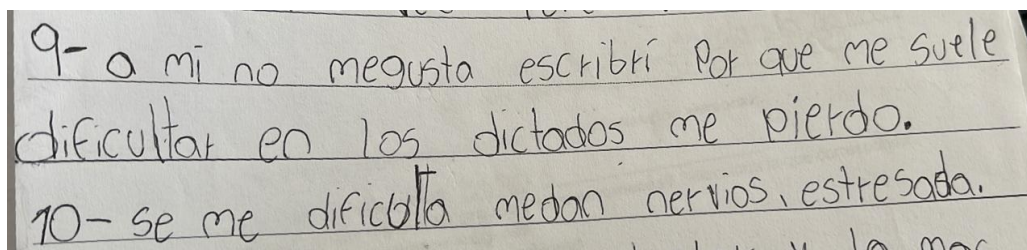 9- a mi no megusta escribrí Por que me suele
dificultar en los dictados me pierdo.
10- se me dificulta medan nervios, estresada.